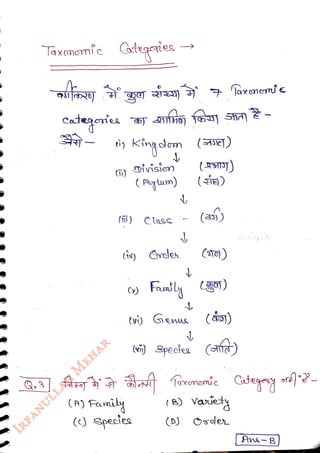 Taxonomic Categories →
वर्गीकरण में कुल संख्या में 7 Taxonomic
categories का शामिल किया जाता है -
जैसे - (i) Kingdom (जगत)
↓
(ii) Division (प्रभाग)
(Phylum) (संघ)
↓
(iii) Class - (वर्ग)
↓
(iv) Order (गण)
↓
(v) Family (कुल)
↓
(vi) Genus (वंश)
↓
(vii) Species (जाति)
Q.3 निम्न में से कौनसी Taxonomic Category नहीं है -
(A) Family (B) Variety
(C) Species (D) Order
Ans - B
IRFANULLAH MEHAR